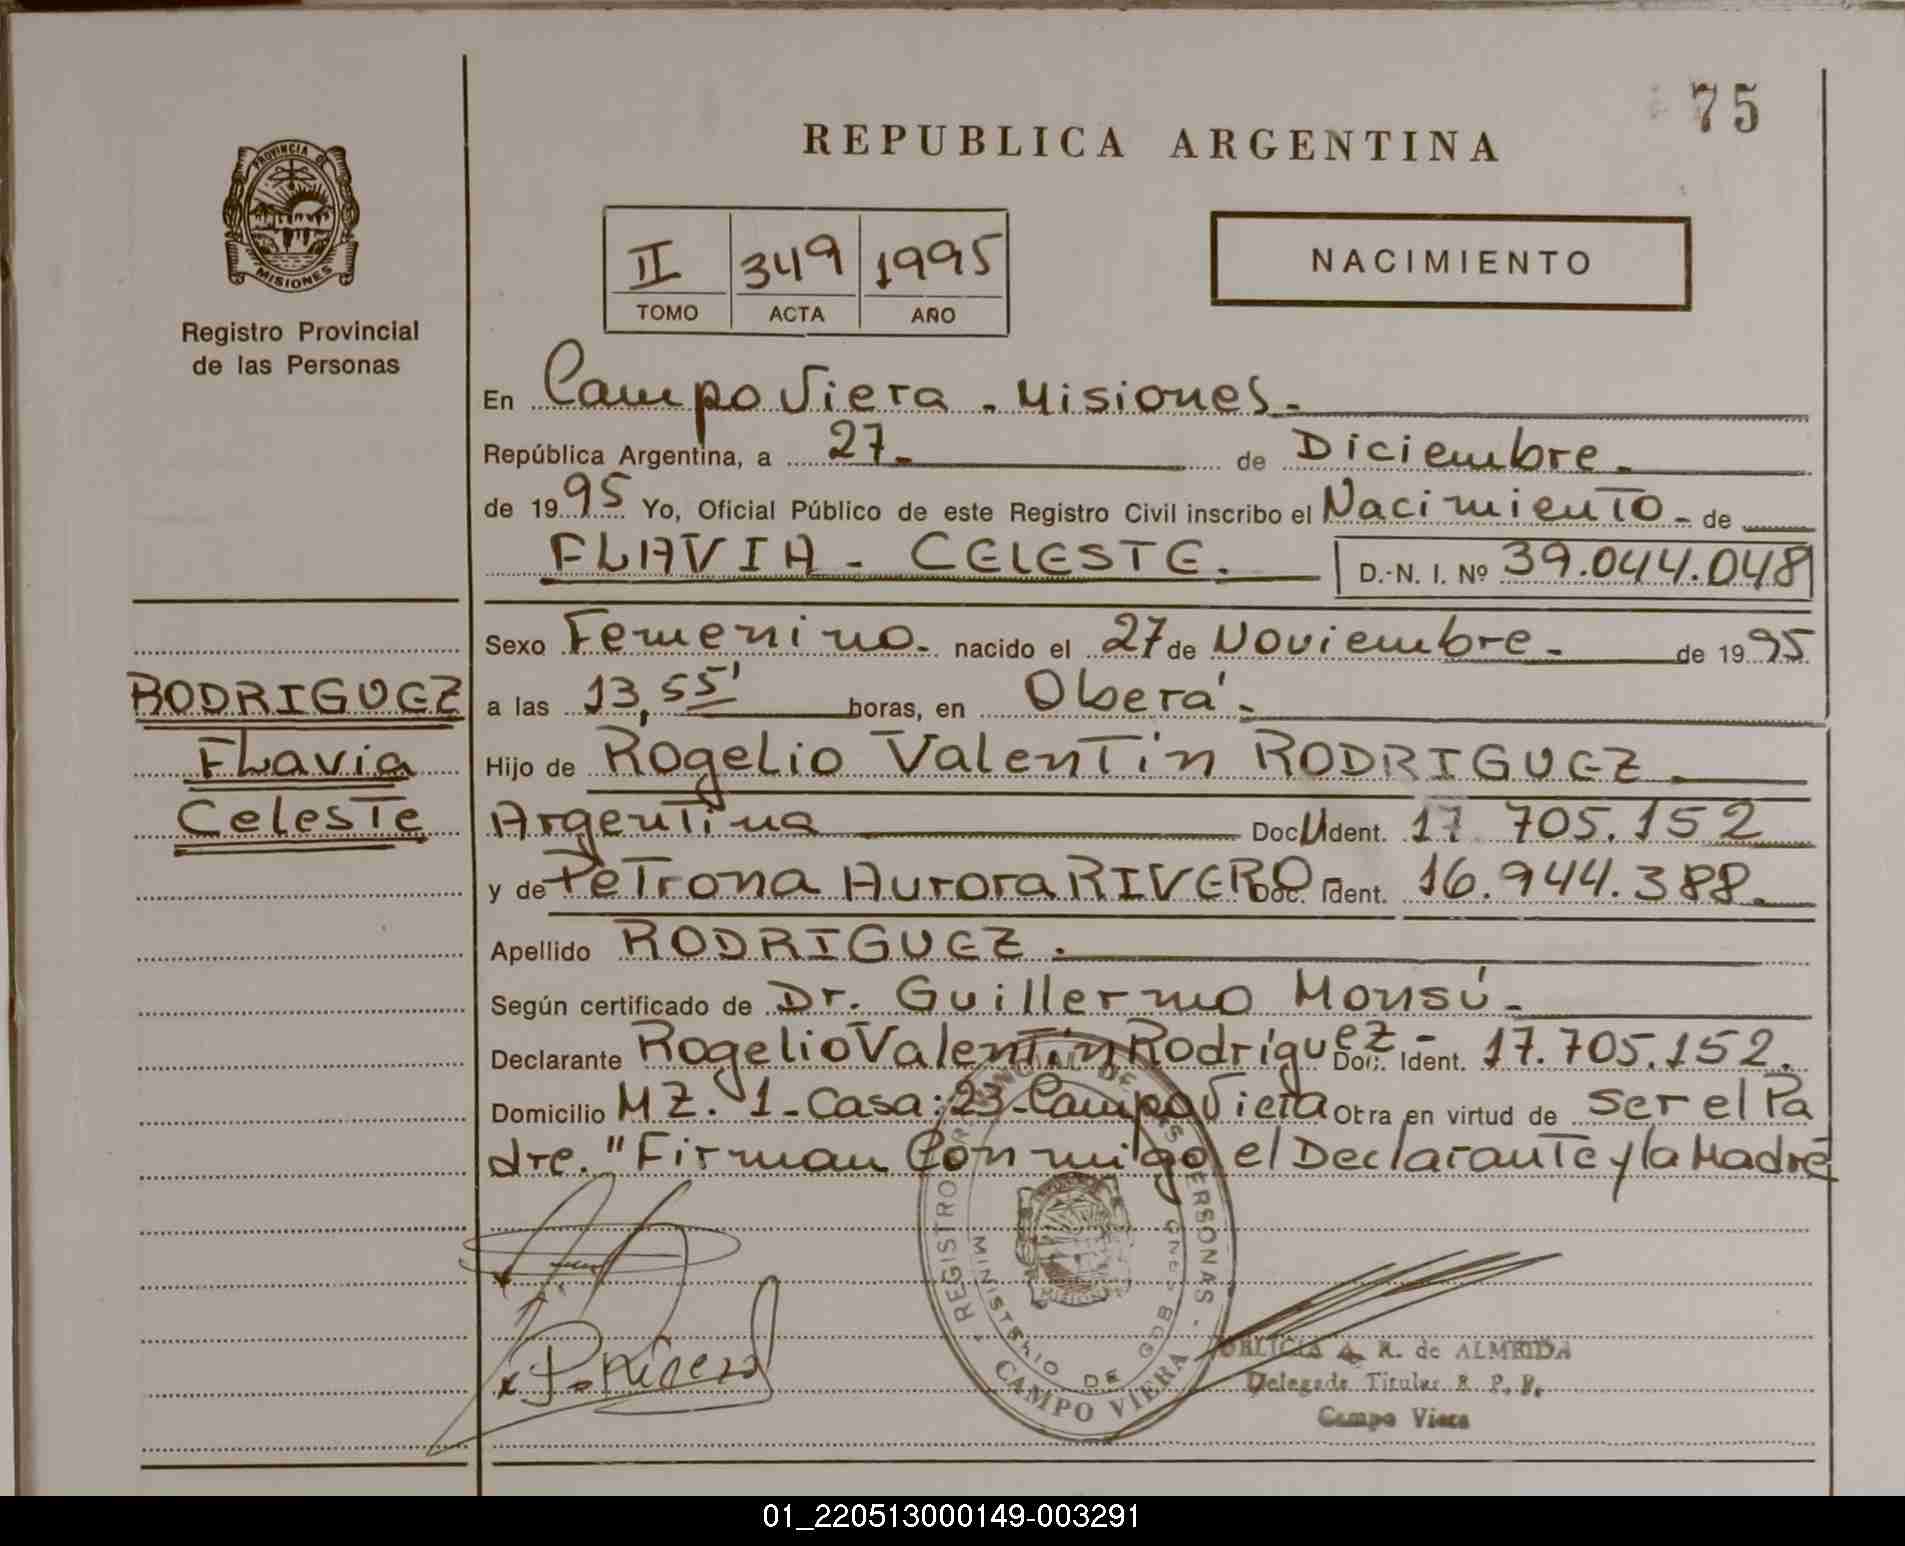 75
REPUBLICA ARGENTINA
PROVINCIA DE
MISIONES
Registro Provincial
de las Personas
II 349 1995
TOMO ACTA AÑO
NACIMIENTO
En Campo Viera - Misiones.
República Argentina, a 27. de Diciembre.
de 1995 Yo, Oficial Público de este Registro Civil inscribo el Nacimiento - de
FLAVIA - CELESTE. D.N.I. Nº 39.044.048
Sexo Femenino. nacido el 27 de Noviembre. de 1995
a las 13,55' horas, en Oberá.
RODRIGUEZ
Flavia
Celeste
Hijo de Rogelio Valentín RODRIGUEZ.
Argentina Doc. Ident. 17 705.152
y de Petrona Aurora RIVERO Doc. Ident. 16.944.388.
Apellido RODRIGUEZ.
Según certificado de Dr. Guillermo Monsú.
Declarante Rogelio Valentín Rodríguez - Doc. Ident. 17.705.152.
Domicilio MZ. 1 - Casa: 23 - Campo Viera Otra en virtud de ser el Pa
dre. "Firman Conmigo el Declarante y la Madre
REGISTRO PROVINCIAL DE LAS PERSONAS
MINISTERIO DE GOB
CAMPO VIERA
P. Rivero
DELICIA A. R. de ALMEIDA
Delegada Titular R. P. P.
Campo Viera
01_220513000149-003291